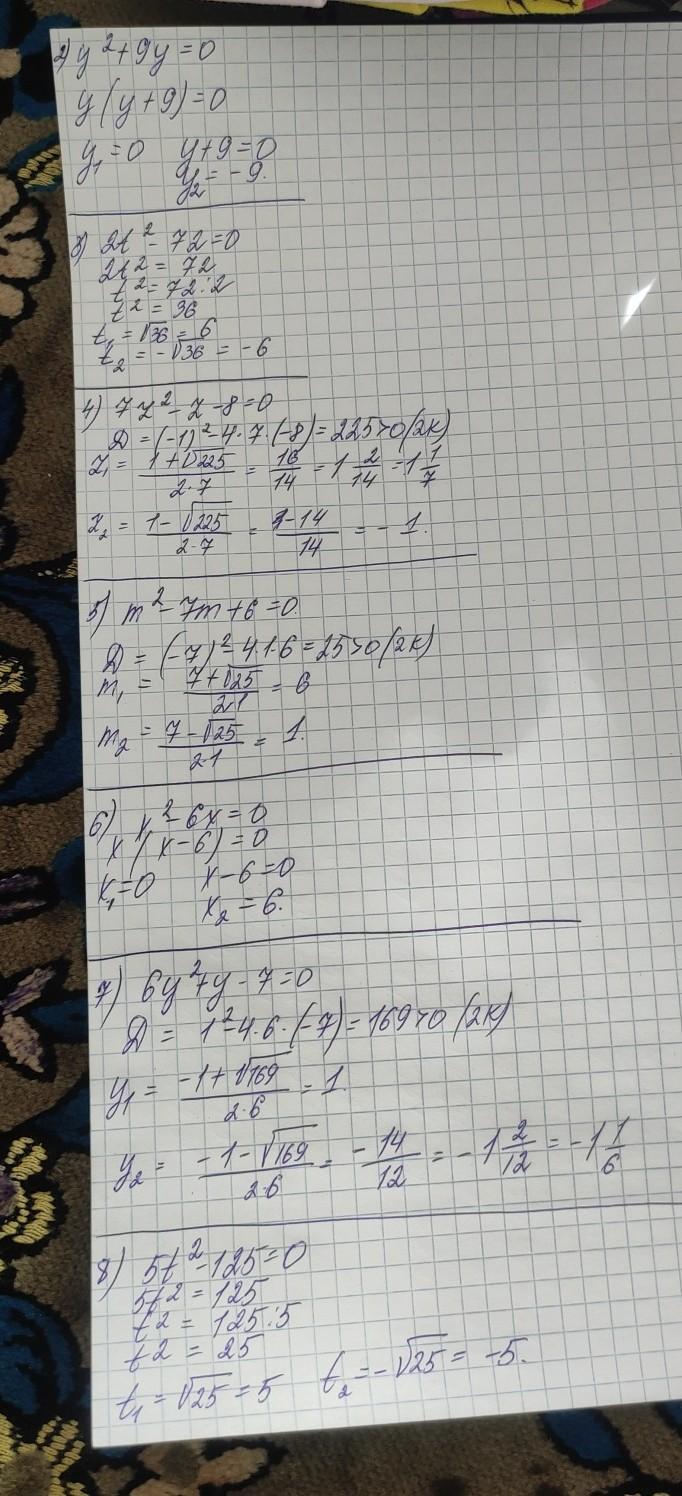 2) y² + 9y = 0
y(y+9) = 0
y₁ = 0 y+9 = 0
y₂ = -9.
3) 2t² - 72 = 0
2t² = 72
t² = 72:2
t² = 36
t₁ = √36 = 6
t₂ = -√36 = -6
4) 7z² - z - 8 = 0
D = (-1)² - 4·7·(-8) = 225 > 0 (2к)
z₁ = (1+√225)/(2·7) = 16/14 = 1 2/14 = 1 1/7
z₂ = (1-√225)/(2·7) = -14/14 = -1.
5) m² - 7m + 6 = 0.
D = (-7)² - 4·1·6 = 25 > 0 (2к)
m₁ = (7+√25)/(2·1) = 6
m₂ = (7-√25)/(2·1) = 1.
6) x² - 6x = 0
x(x-6) = 0
x₁ = 0 x-6 = 0
x₂ = 6.
7) 6y² + y - 7 = 0
D = 1² - 4·6·(-7) = 169 > 0 (2к)
y₁ = (-1+√169)/(2·6) = 1
y₂ = (-1-√169)/(2·6) = -14/12 = -1 2/12 = -1 1/6
8) 5t² - 125 = 0
5t² = 125
t² = 125:5
t² = 25
t₁ = √25 = 5 t₂ = -√25 = -5.